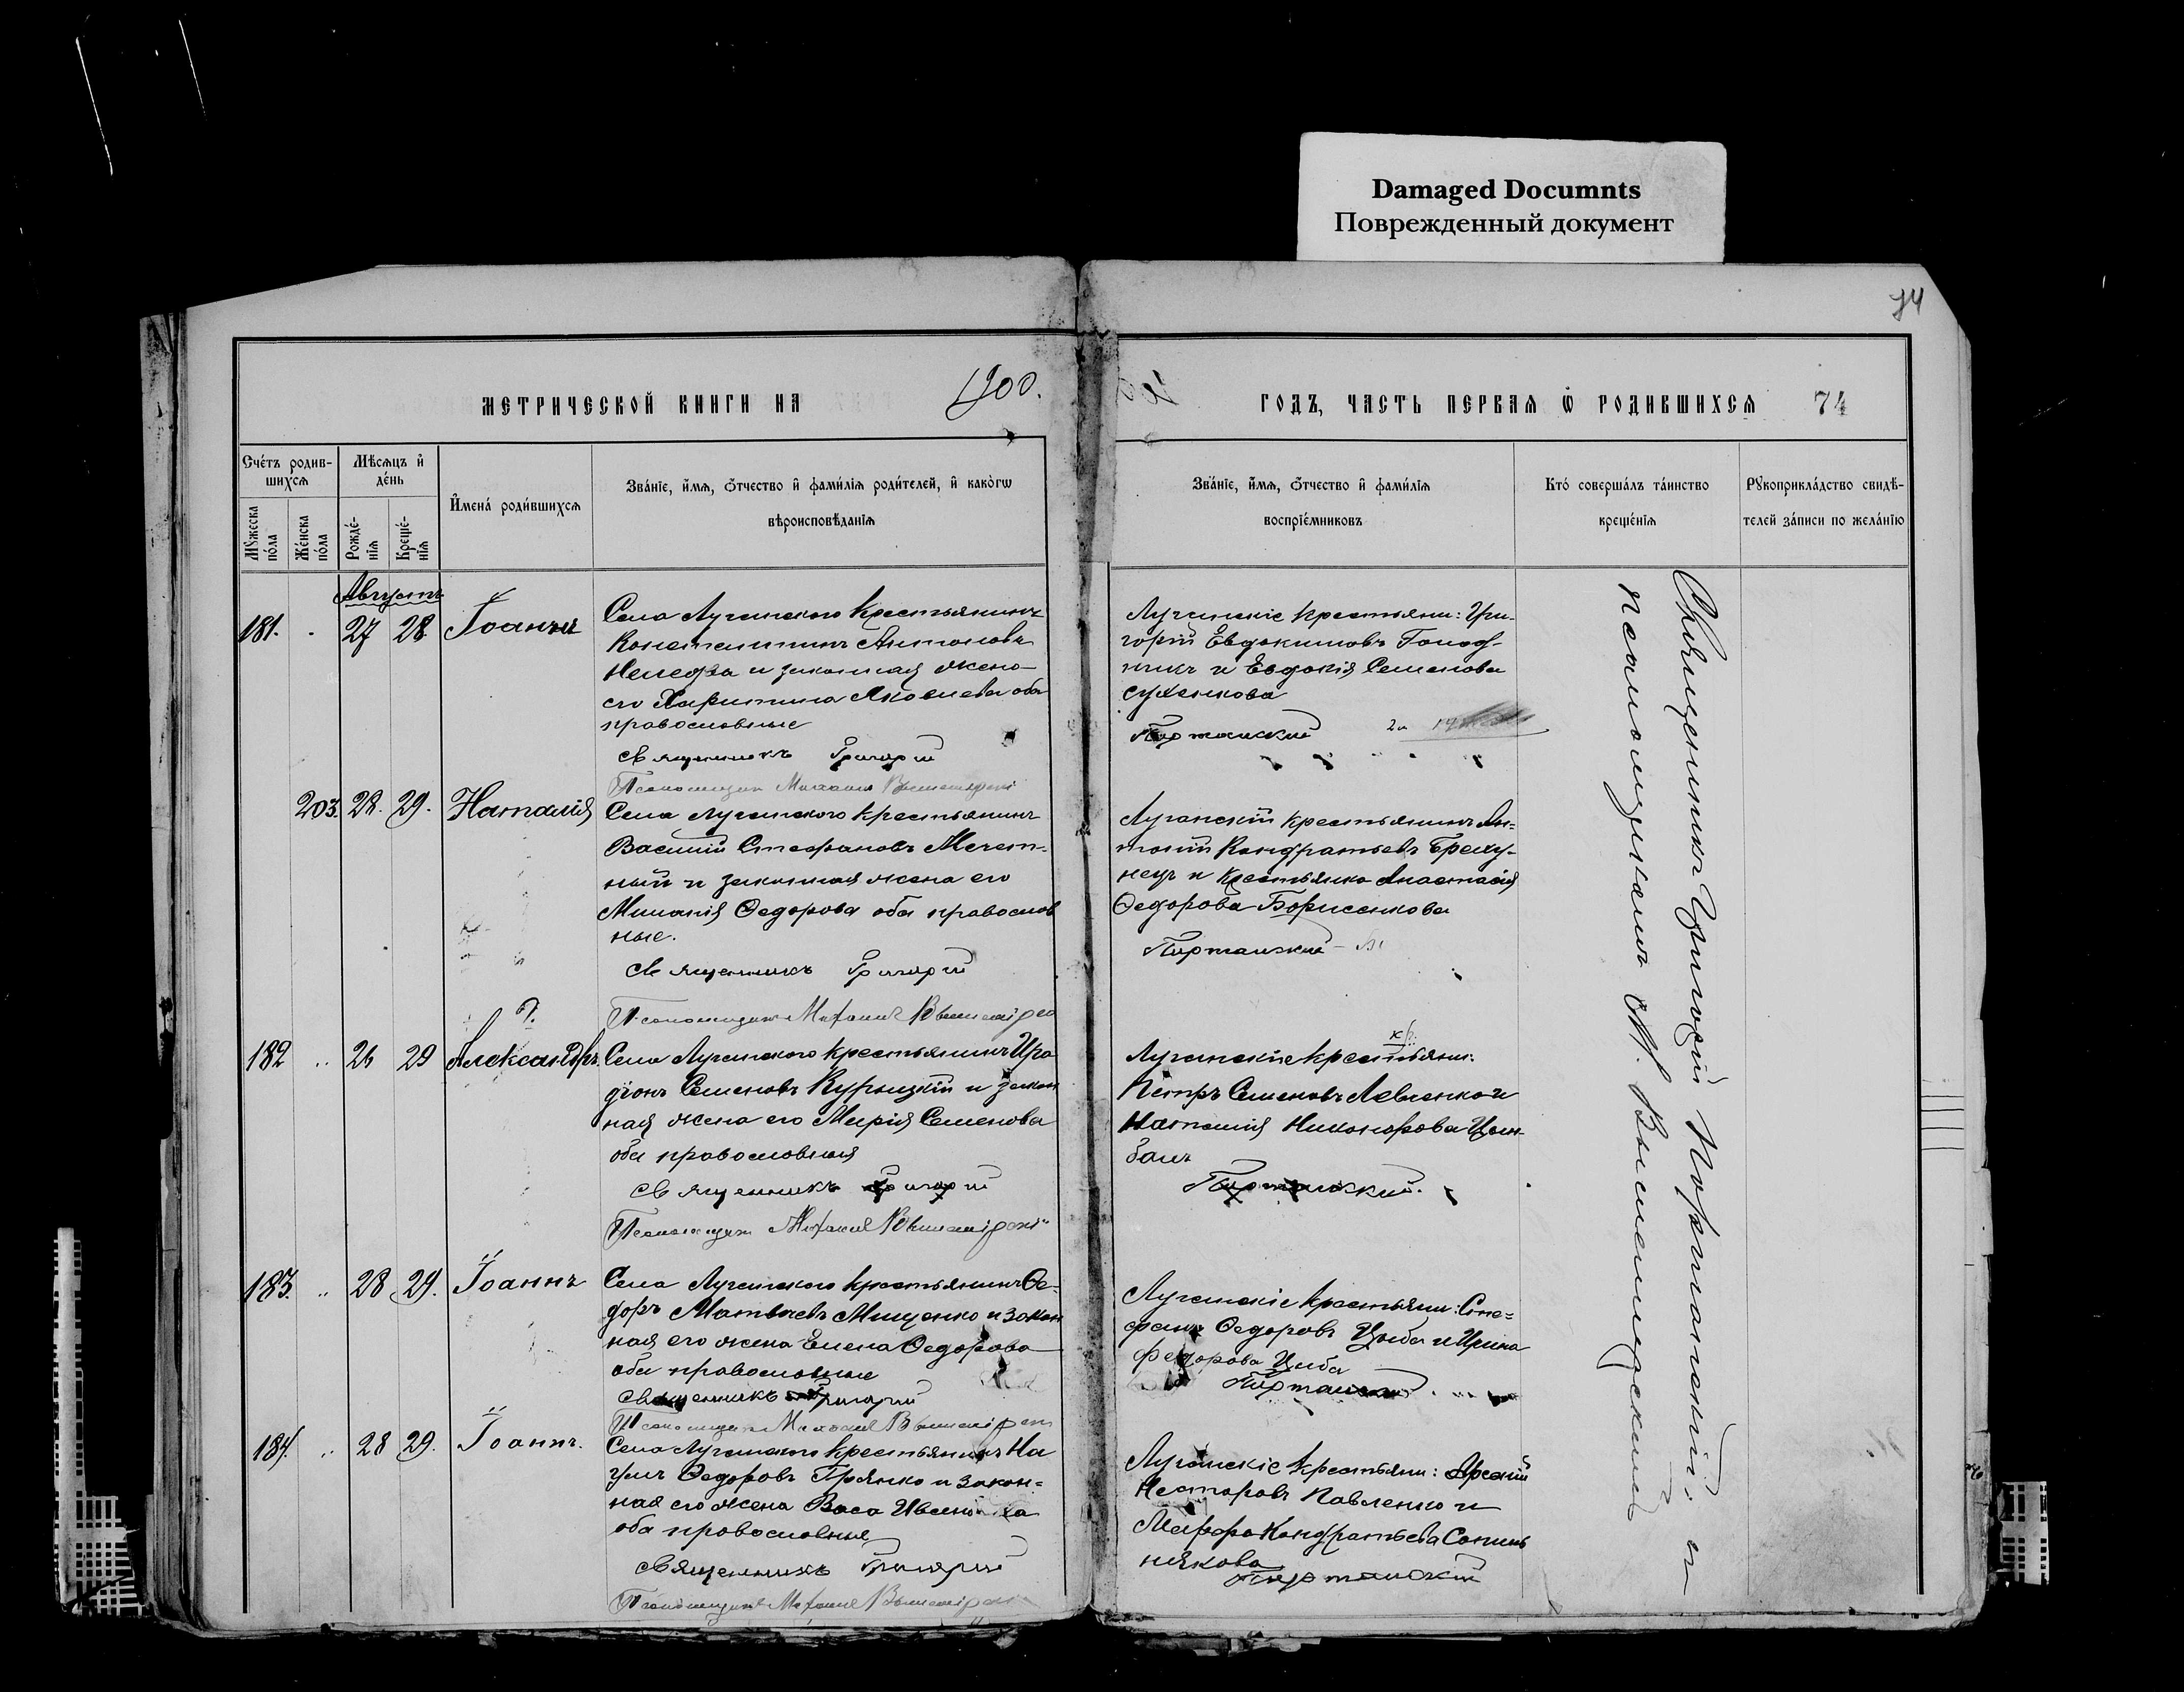 Damaged Documnts
Поврежденный документ
74
МЕТРИЧЕСКОЙ КНИГИ НА 1900.
ГОДЪ, ЧАСТЬ ПЕРВАѦ Ѿ РОДИВШИХСѦ 74
Счéтъ родив-
шихсѧ
Мѣсѧцъ и҆
дéнь
Мꙋжеска
пóла
Жéнска
пóла
Рождé-
нїѧ
Крещé-
нїѧ
И҆менá роди́вшихсѧ
Звáнїе, и҆́мѧ, ѻ҆́тчество и҆ фами́лїѧ роди́телей, и҆ какóгѡ
вѣроисповѣ́данїѧ
Звáнїе, и҆́мѧ, ѻ҆́тчество и҆ фами́лїѧ
воспрїéмниковъ
Ктó совершáлъ тáинство
крещéнїѧ
Рꙋкоприклáдство свидѣ́-
телей зáписи по желáнїю
Августъ
181. 27 28 Іоаннъ
Села Луганского крестьянинъ
Константинъ Антоновъ
и законная жена
его Харитина Яковлева оба
православные
Священникъ Григорій
Псаломщикъ Михаилъ
Луганскіе крестьяни: Гри-
горій Евдокимовъ
и Евдокія Семенова
Сухенкова
Портанскій
203. 28. 29. Наталія
Села Луганского крестьянинъ
Василій Стефановъ Мечет-
ный и законная жена его
Меланія Ѳедорова оба православ
ные.
Священникъ Григорій
Псаломщикъ Михаилъ
Луганскій крестьянинъ Ан-
тоній Кондратьевъ Бреху-
нецъ и крестьянка Анастасія
Ѳедорова Борисенкова
Портанскій
182 26 29 Александръ
Села Луганского крестьянинъ Иро
діонъ Семеновъ Курицкій и закон
ная жена его Марія Семенова
оба православныя
Священникъ Григорій
Псаломщикъ Михаилъ
Луганскіе крестьяни:
Петръ Семеновъ Левченко и
Наталія Никонорова Цым-
балъ
Портанскій.
183. 28 29. Іоаннъ
Села Луганского крестьянинъ Ѳе-
доръ Матвѣевъ Мищенко и закон
ная его жена Елена Ѳедорова
оба православные
Священникъ Григорій
Псаломщикъ Михаилъ
Луганскіе крестьяни: Сте-
фанъ Ѳедоровъ Цыба и Ирина
Федорова Цыба
Портанскій
184. 28 29. Іоаннъ.
Села Луганского крестьянинъ На
умъ Ѳедоровъ Прянко и закон-
ная его жена Васа
оба православныя
Священникъ Григорій
Псаломщикъ Михаилъ
Луганскіе крестьяни: Арсеній
Несторовъ Павленко и
Марфа Кондратьева
Портанскій
Священникъ Григорій Портанскій и
псаломщикъ М.